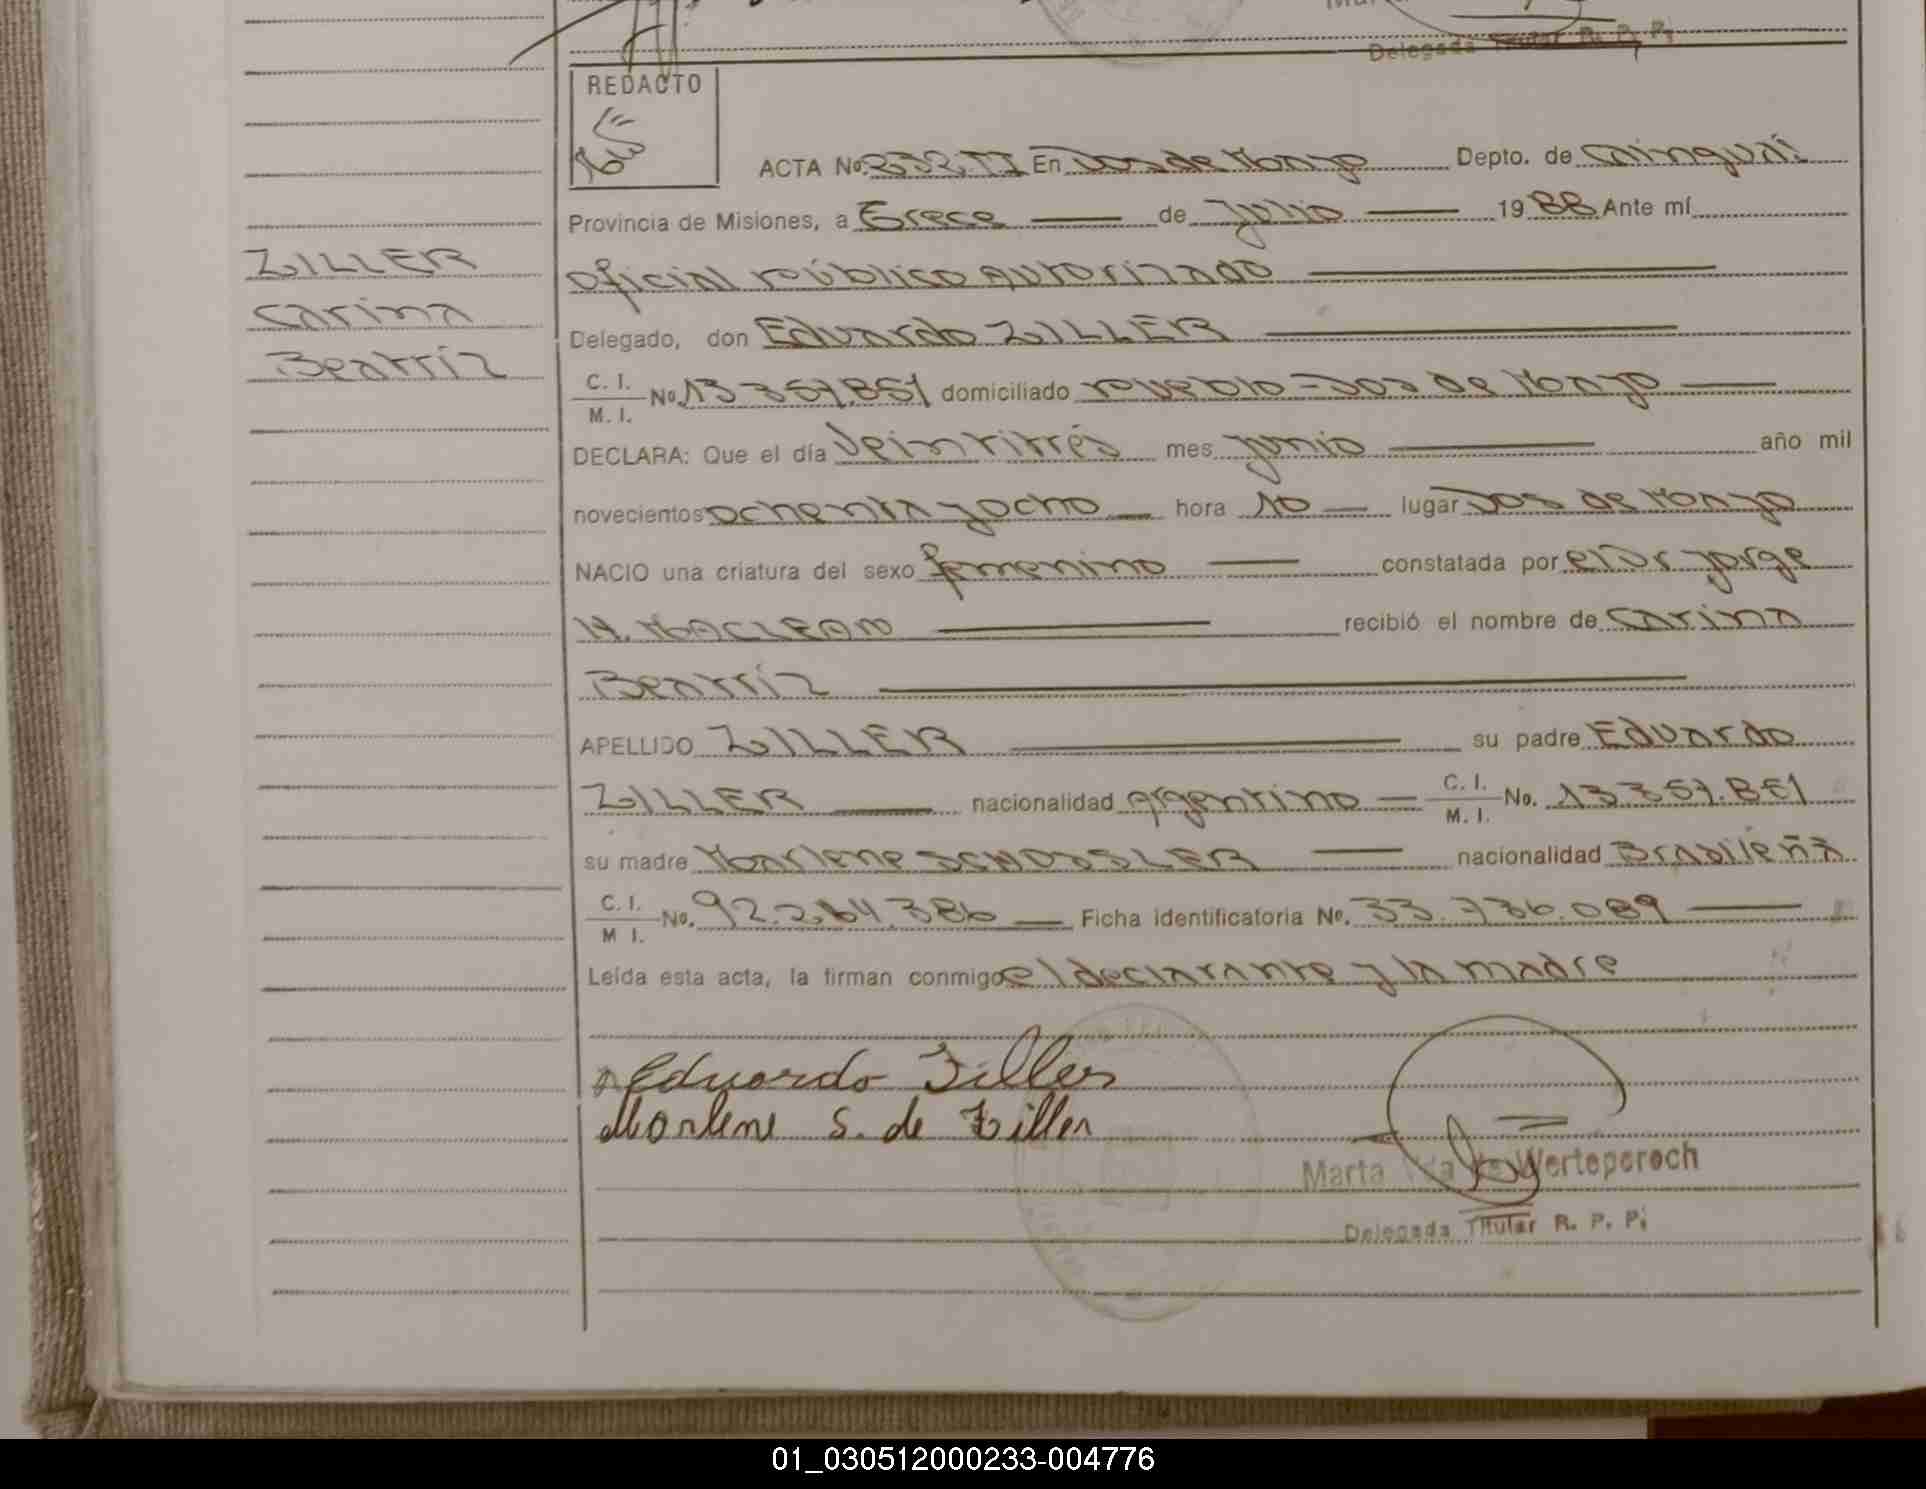 Delegada Titular R. P. P.
REDACTO
ACTA No. 332. TI En Dos de Mayo Depto. de Cainguás
Provincia de Misiones, a Trece de Julio 1988 Ante mí
ZILLER
oficial público autorizado
Carina
Delegado, don Eduardo ZILLER
Beatríz
C. I.
M. I. No. 13.357.851 domiciliado pueblo - Dos de Mayo
DECLARA: Que el día Veintitrés mes junio año mil
novecientos ochenta y ocho hora 10 lugar Dos de Mayo
NACIO una criatura del sexo femenino constatada por el Dr Jorge
H. MACLEAN recibió el nombre de Carina
Beatríz
APELLIDO ZILLER su padre Eduardo
ZILLER nacionalidad argentino C. I. M. I. No. 13.357.851
su madre Marlene SCHOSSLER nacionalidad Brasileña
C. I. M I. No. 92.264.386 Ficha identificatoria No. 33.736.089
Leída esta acta, la firman conmigo el declarante y la madre
Eduardo Ziller
Marlene S. de Ziller
Marta de Werteperoch
Delegada Titular R. P. P.
01_030512000233-004776